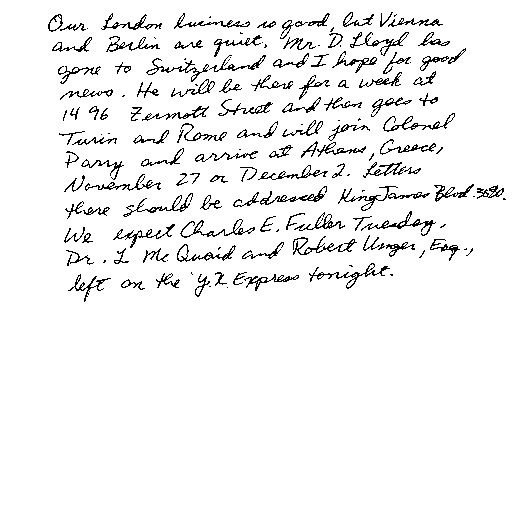 Our London business is good, but Vienna
and Berlin are quiet. Mr. D. Lloyd has
gone to Switzerland and I hope for good
news. He will be there for a week at
1496 Zermott Street and then goes to
Turin and Rome and will join Colonel
Parry and arrive at Athens, Greece,
November 27 or December 2. Letters
there should be addressed King James Blvd. 3580.
We expect Charles E. Fuller Tuesday.
Dr. L Mc Quaid and Robert Unger, Esq.,
left on the Y.X. Express tonight.